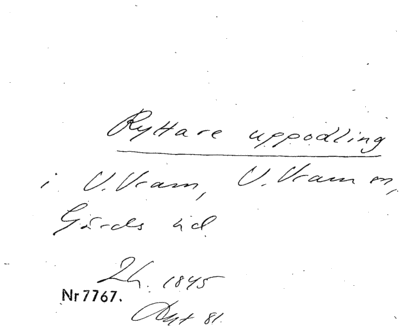 Ryttare uppodling
i V. Vram, V. Vram sn,
Gärds hd.
Lh. 1845
Nr 7767.
Akt 81.